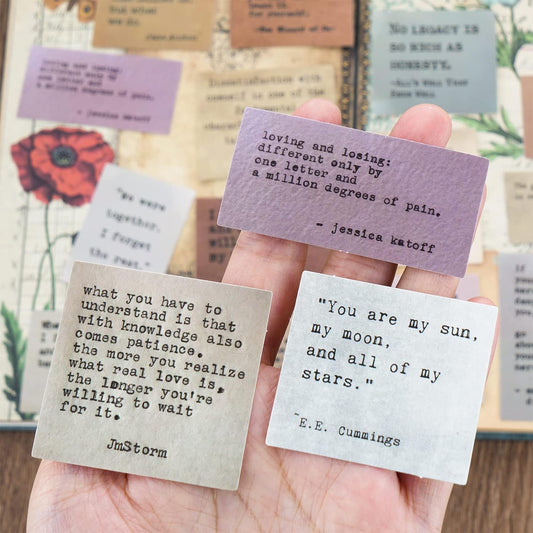 NO LEGACY IS
SO RICH AS
HONESTY.
-ALL'S WELL THAT
ENDS WELL
loving and losing:
different only by
one letter and
a million degrees of pain.
- jessica katoff
Dissatisfaction with
oneself is one of the
"We were
together.
I forget
the rest."
loving and losing:
different only by
one letter and
a million degrees of pain.
- jessica katoff
what you have to
understand is that
with knowledge also
comes patience.
the more you realize
what real love is.
the longer you're
willing to wait
for it.
JmStorm
"You are my sun,
my moon,
and all of my
stars."
~E.E. Cummings